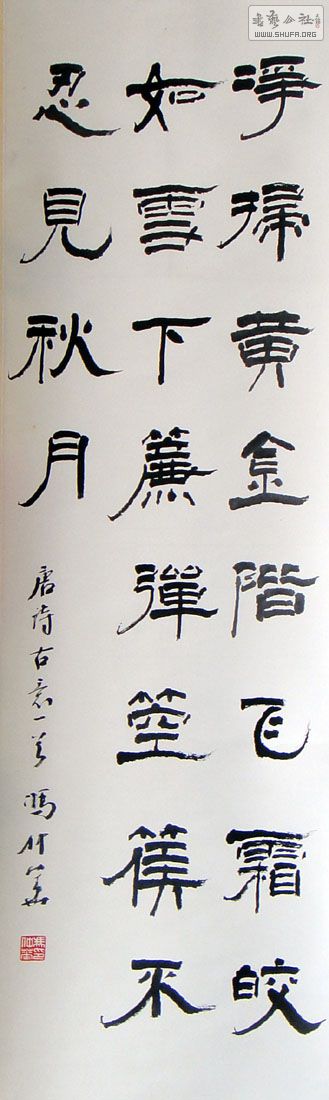 書藝公社
WWW.SHUFA.ORG
淨掃黃金階飞霜皎
如雪下簾彈箜篌不
忍見秋月
唐詩古意一首 馮